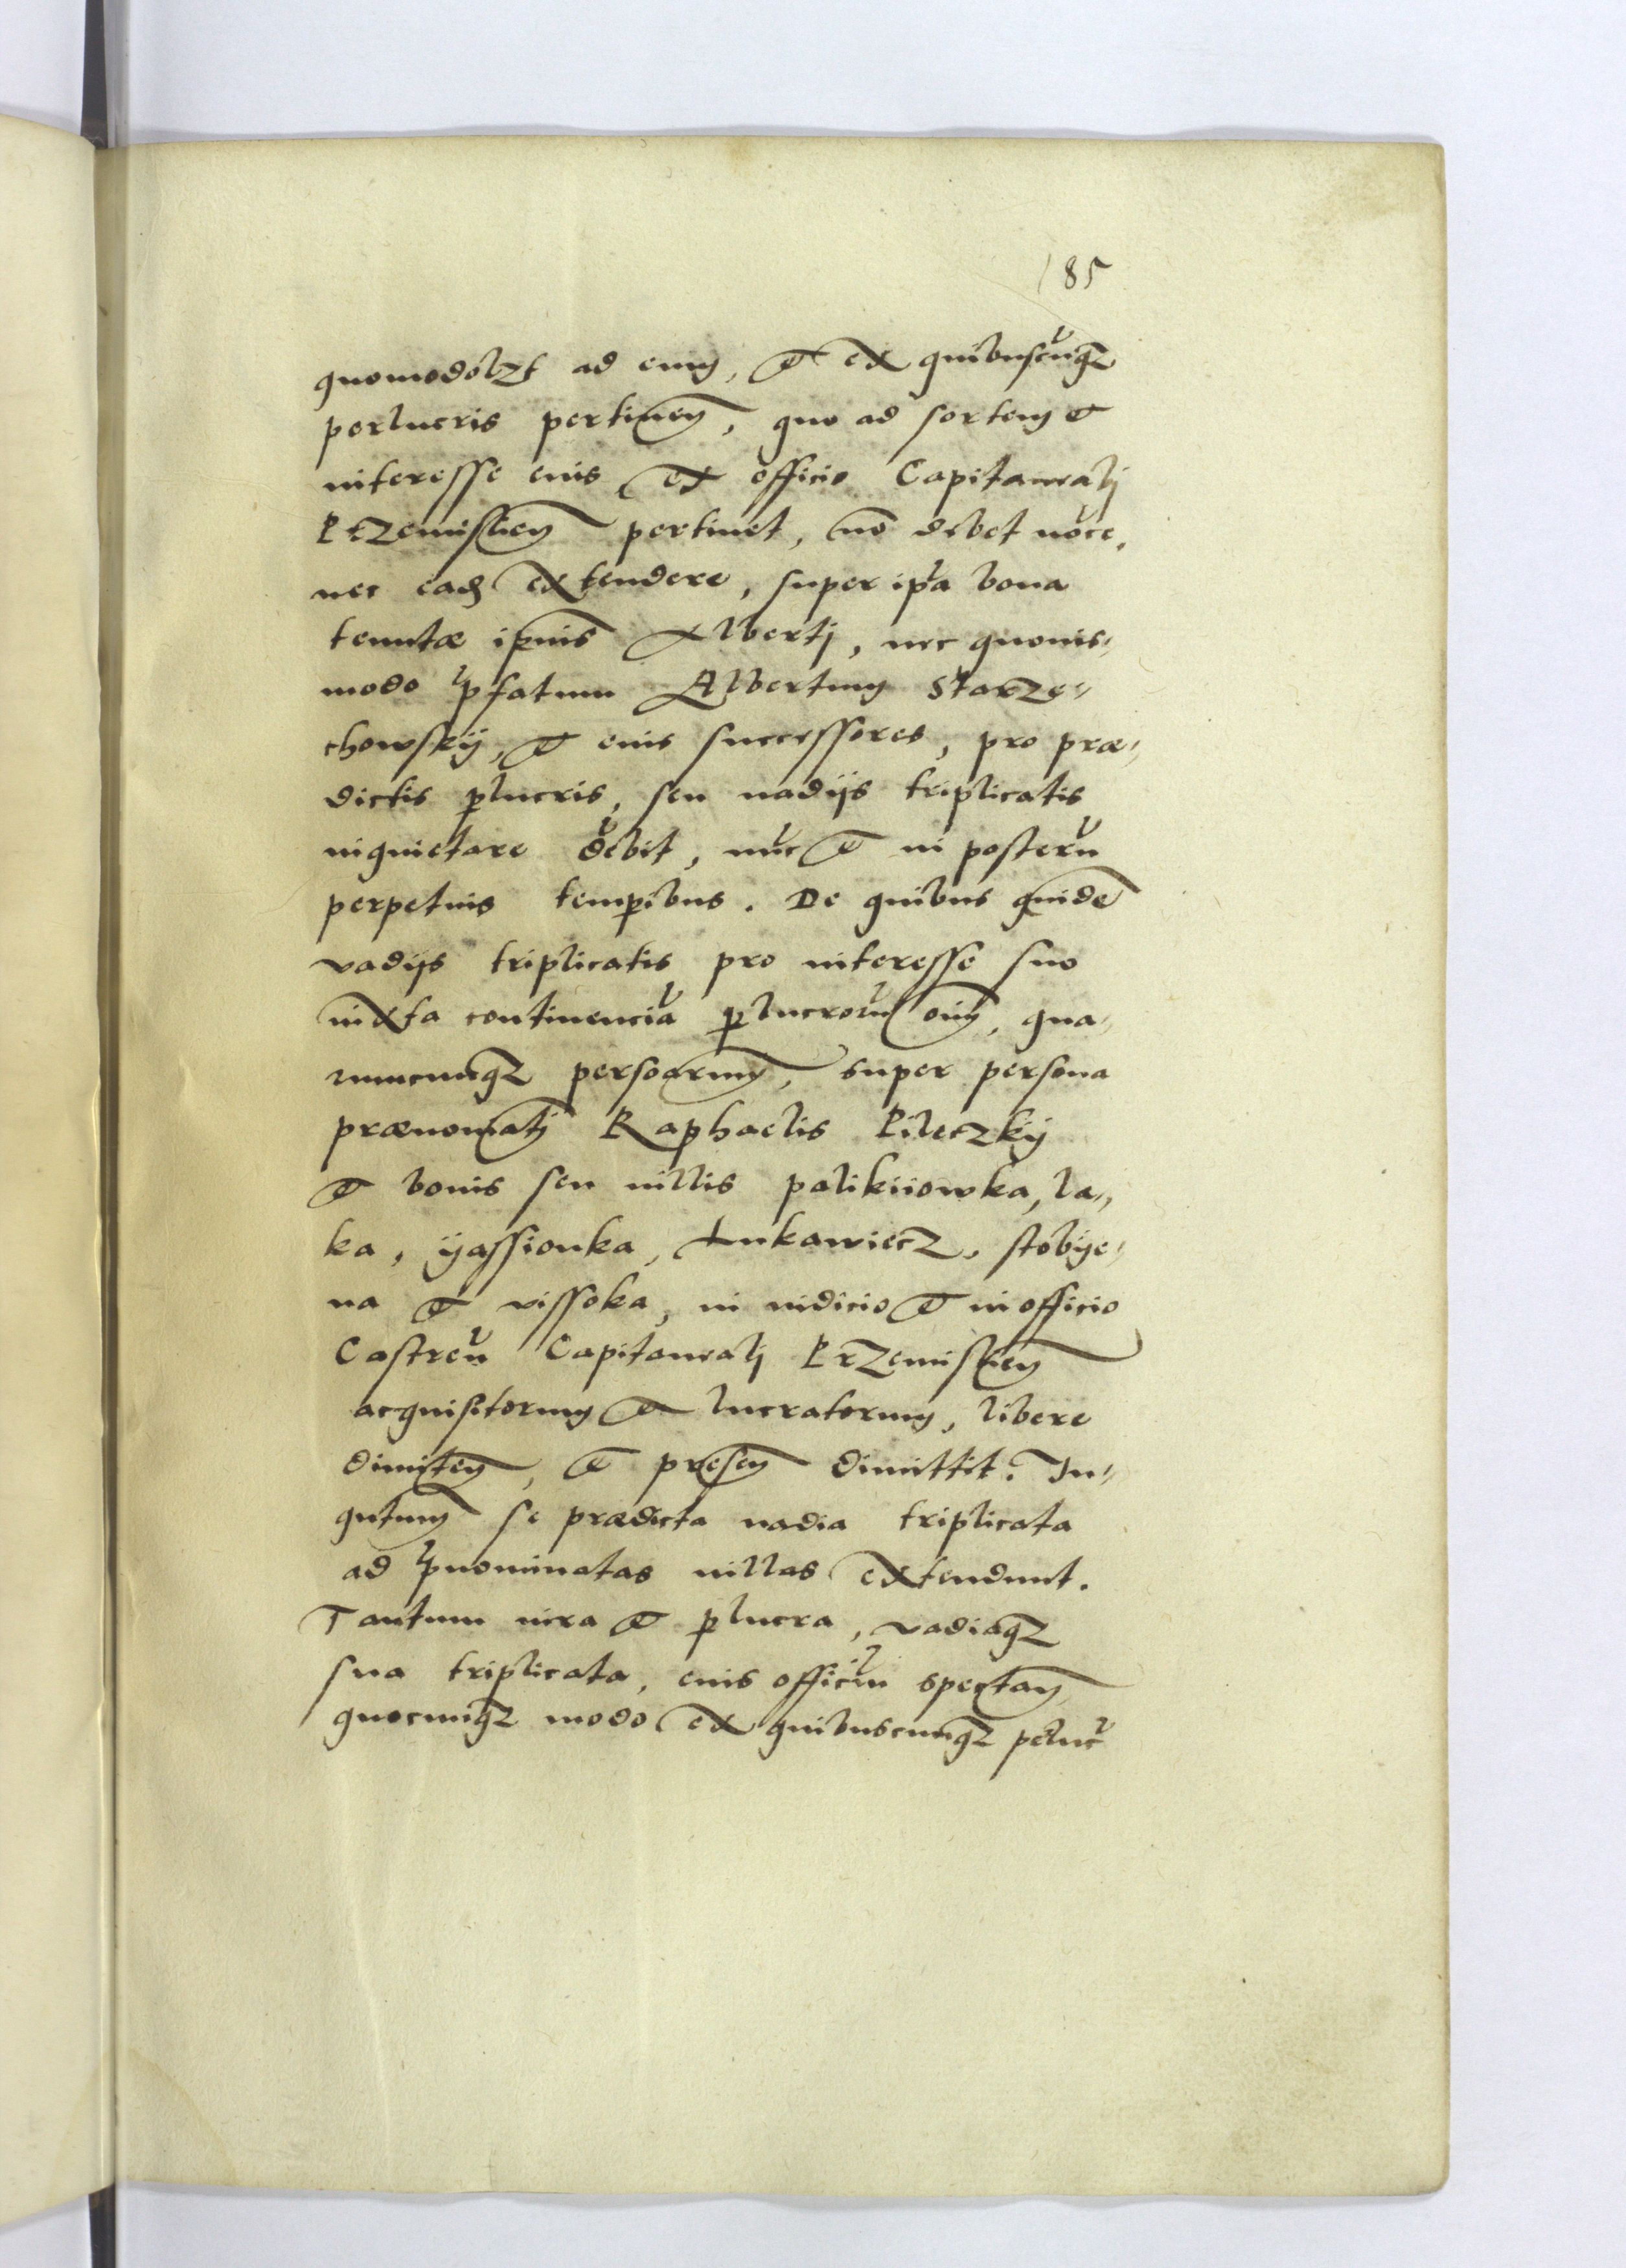 185
quomodolzt ad eum, et ex quibuscūqz
perlucris pertinen, quo ad sortem et
interesse eius ex officio Capitaneali
Przemislien pertinet, no debet nūce,
nec eadem extendere, super ipa bona
tenutæ ipsius Alberti, nec quouis„
modo pfatum Albertum Starze„
chowskÿ, et eius successores, pro præ„
dictis plucris, seu uadijs triplicatis
inquietare debit, nūc et in posterū
perpetuis tempibus. De quibus quide
vadijs triplicatis pro interesse suo
iuxta continenciā plucrorū oim, qua„
rumcunqz personarum, super persona
prænomiati Raphaelis Pileczkÿ
et bonis seu uillis palikiiowka, la„
ka, ÿassionka, Lukawiecz, stobÿe„
na et vissoka, in iudicio et in officio
Castreñ Capitaneali Przemislien
acquisitorum et lucratorum, libere
dimiten, et presen dimittit. In„
qutum se prædicta uadia triplicata
ad pnominatas uillas extendunt.
Tantum iura et plucra, vadiaqz
sua triplicata, eius officiū spectan
quocunqz modo ex quibuscunqz peluc